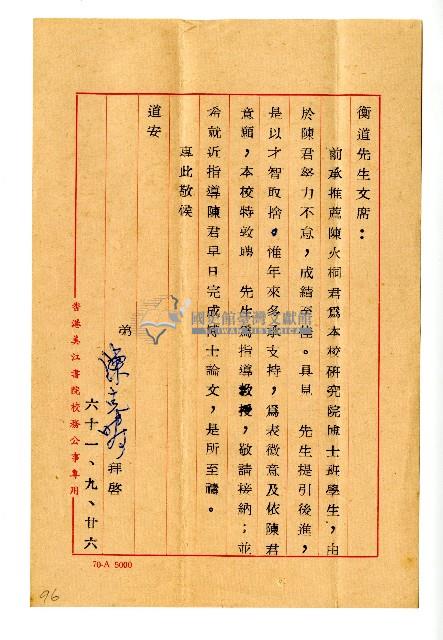 衡道先生文席：
前承推薦陳火桐君爲本校研究院博士班學生，由
於陳君努力不怠，成績至佳。具見　先生提引後進，
是以才智取捨。惟年來多承支持，爲表微意及依陳君
意願，本校特敦聘　先生爲指導教授，敬請接納；並
希就近指導陳君早日完成博士論文，是所至禱。
專此敬候
道安
弟
拜啓
六十一、九、廿六
香港美江書院校務公事專用
70-A 5000
96
國史館臺灣文獻館
TAIWAN HISTORICA